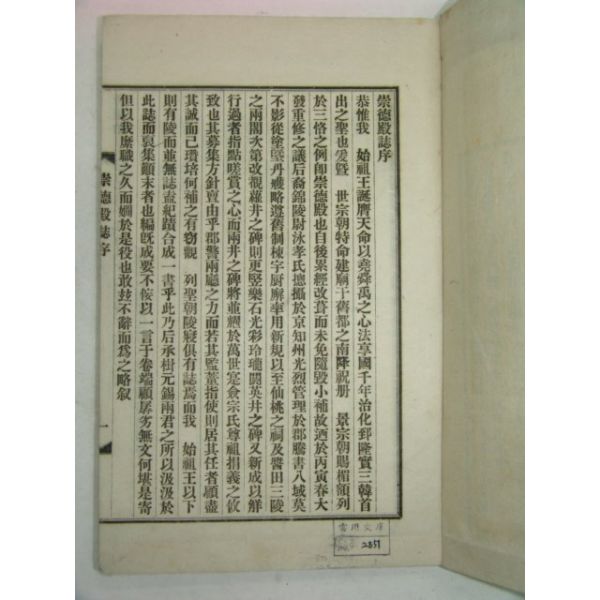 崇德殿誌序
恭惟我 始祖王誕膺天命以堯舜禹之心法享國千年治化郅隆實三韓首
出之聖也爰曁 世宗朝特命建廟于舊都之南降祝册 景宗朝賜楣額列
於三恪之例卽崇德殿也自後累經改葺而未免隨毁小補故迺於丙寅春大
發重修之議后裔錦陵尉泳孝氏摠攝於京知州光烈管理於郡騰書八域莫
不影從塗墍丹雘略遵舊制棟宇厨廨率用新規以至仙桃之祠及譽田三陵
之兩閣次第改觀蘿井之碑則更竪樂石光彩玲瓏閼英井之碑又新成以鮮
行過者指點嗟賞之心而兩井之碑將並耀於萬世寔僉宗氏尊祖捐義之攸
致也其募集方針亶由乎郡警兩廳之力而若其監董指使則居其任者顧盡
其誠而己瓚培何補之有竊觀 列聖朝陵寢俱有誌焉而我 始祖王以下
則有陵而並無誌盍紀蹟合成一書乎此乃后承樹元錫雨君之所以汲汲於
此誌而裒集顚末者也編旣成要不侫以一言于卷端顧孱劣無文何堪是寄
但以我縻職之久而嫺於是役也敢玆不辭而爲之略叙
崇德殿誌序
一
2851